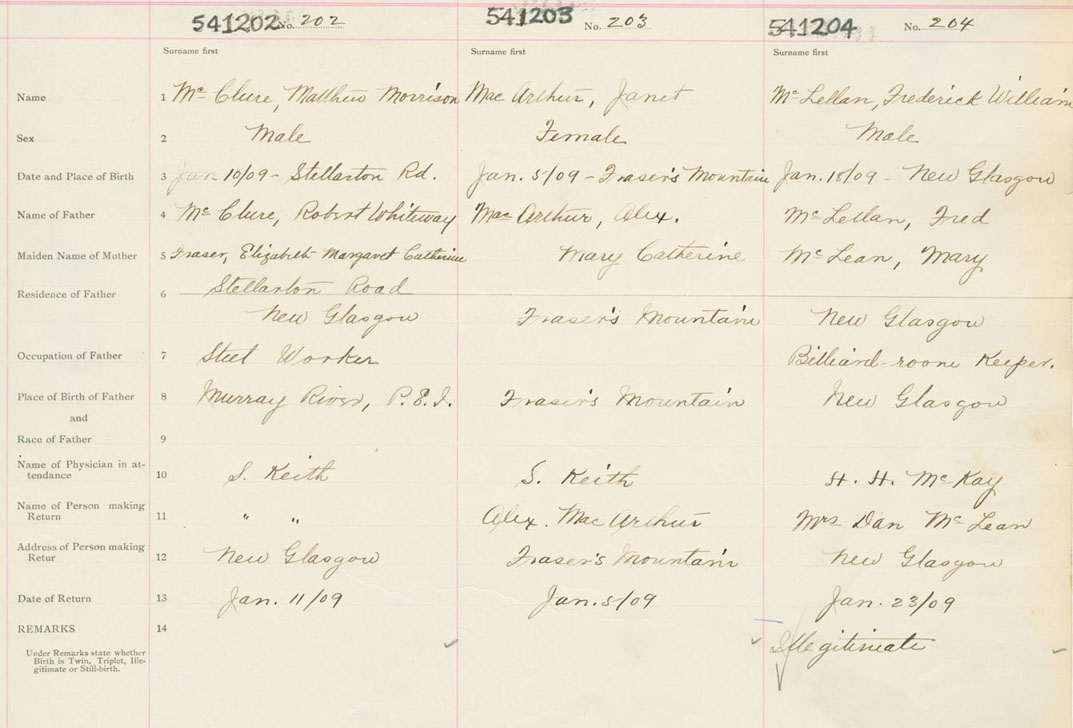 541202 No. 202 541203 No. 203 541204 No. 204
Surname first Surname first Surname first
Name 1 Mc Clure, Matthew Morrison Mac Arthur, Janet Mc Lellan, Frederick William
Sex 2 Male Female Male
Date and Place of Birth 3 Jan 10/09 - Stellarton Rd. Jan. 5/09 - Fraser's Mountain Jan. 18/09 - New Glasgow
Name of Father 4 Mc Clure, Robert Whiteway Mac Arthur, Alex. Mc Lellan, Fred
Maiden Name of Mother 5 Fraser, Elizabeth Margaret Catherine Mary Catherine Mc Lean, Mary
Residence of Father 6 Stellarton Road
New Glasgow Fraser's Mountain New Glasgow
Occupation of Father 7 Steel Worker Billiard-room Keeper.
Place of Birth of Father 8 Murray River, P.E.I. Fraser's Mountain New Glasgow
and
Race of Father 9
Name of Physician in at-
tendance 10 S. Keith S. Keith H. H. McKay
Name of Person making
Return 11 " " Alex. Mac Arthur Mrs Dan Mc Lean
Address of Person making
Retur 12 New Glasgow Fraser's Mountain New Glasgow
Date of Return 13 Jan. 11/09 Jan. 5/09 Jan. 23/09
REMARKS 14
Illegitimate
Under Remarks state whether
Birth is Twin, Triplet, Ille-
gitimate or Still-birth.